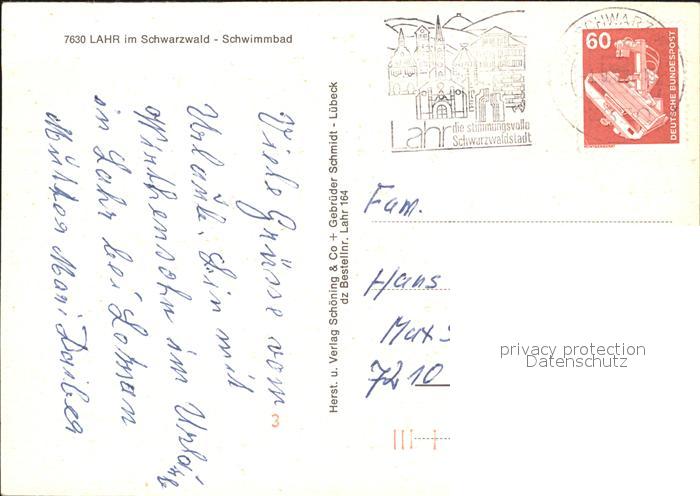 7630 LAHR im Schwarzwald - Schwimmbad
Viele Grüsse vom
Urlaub. Bin mit
in Lahr bei
Mari
Herst. u. Verlag Schöning & Co + Gebrüder Schmidt - Lübeck
dz Bestellnr. Lahr 164
3
Lahr die stimmungsvolle
Schwarzwaldstadt
SCHWARZ
60
DEUTSCHE BUNDESPOST
Fam.
Hans
Max-
7210
privacy protection
Datenschutz